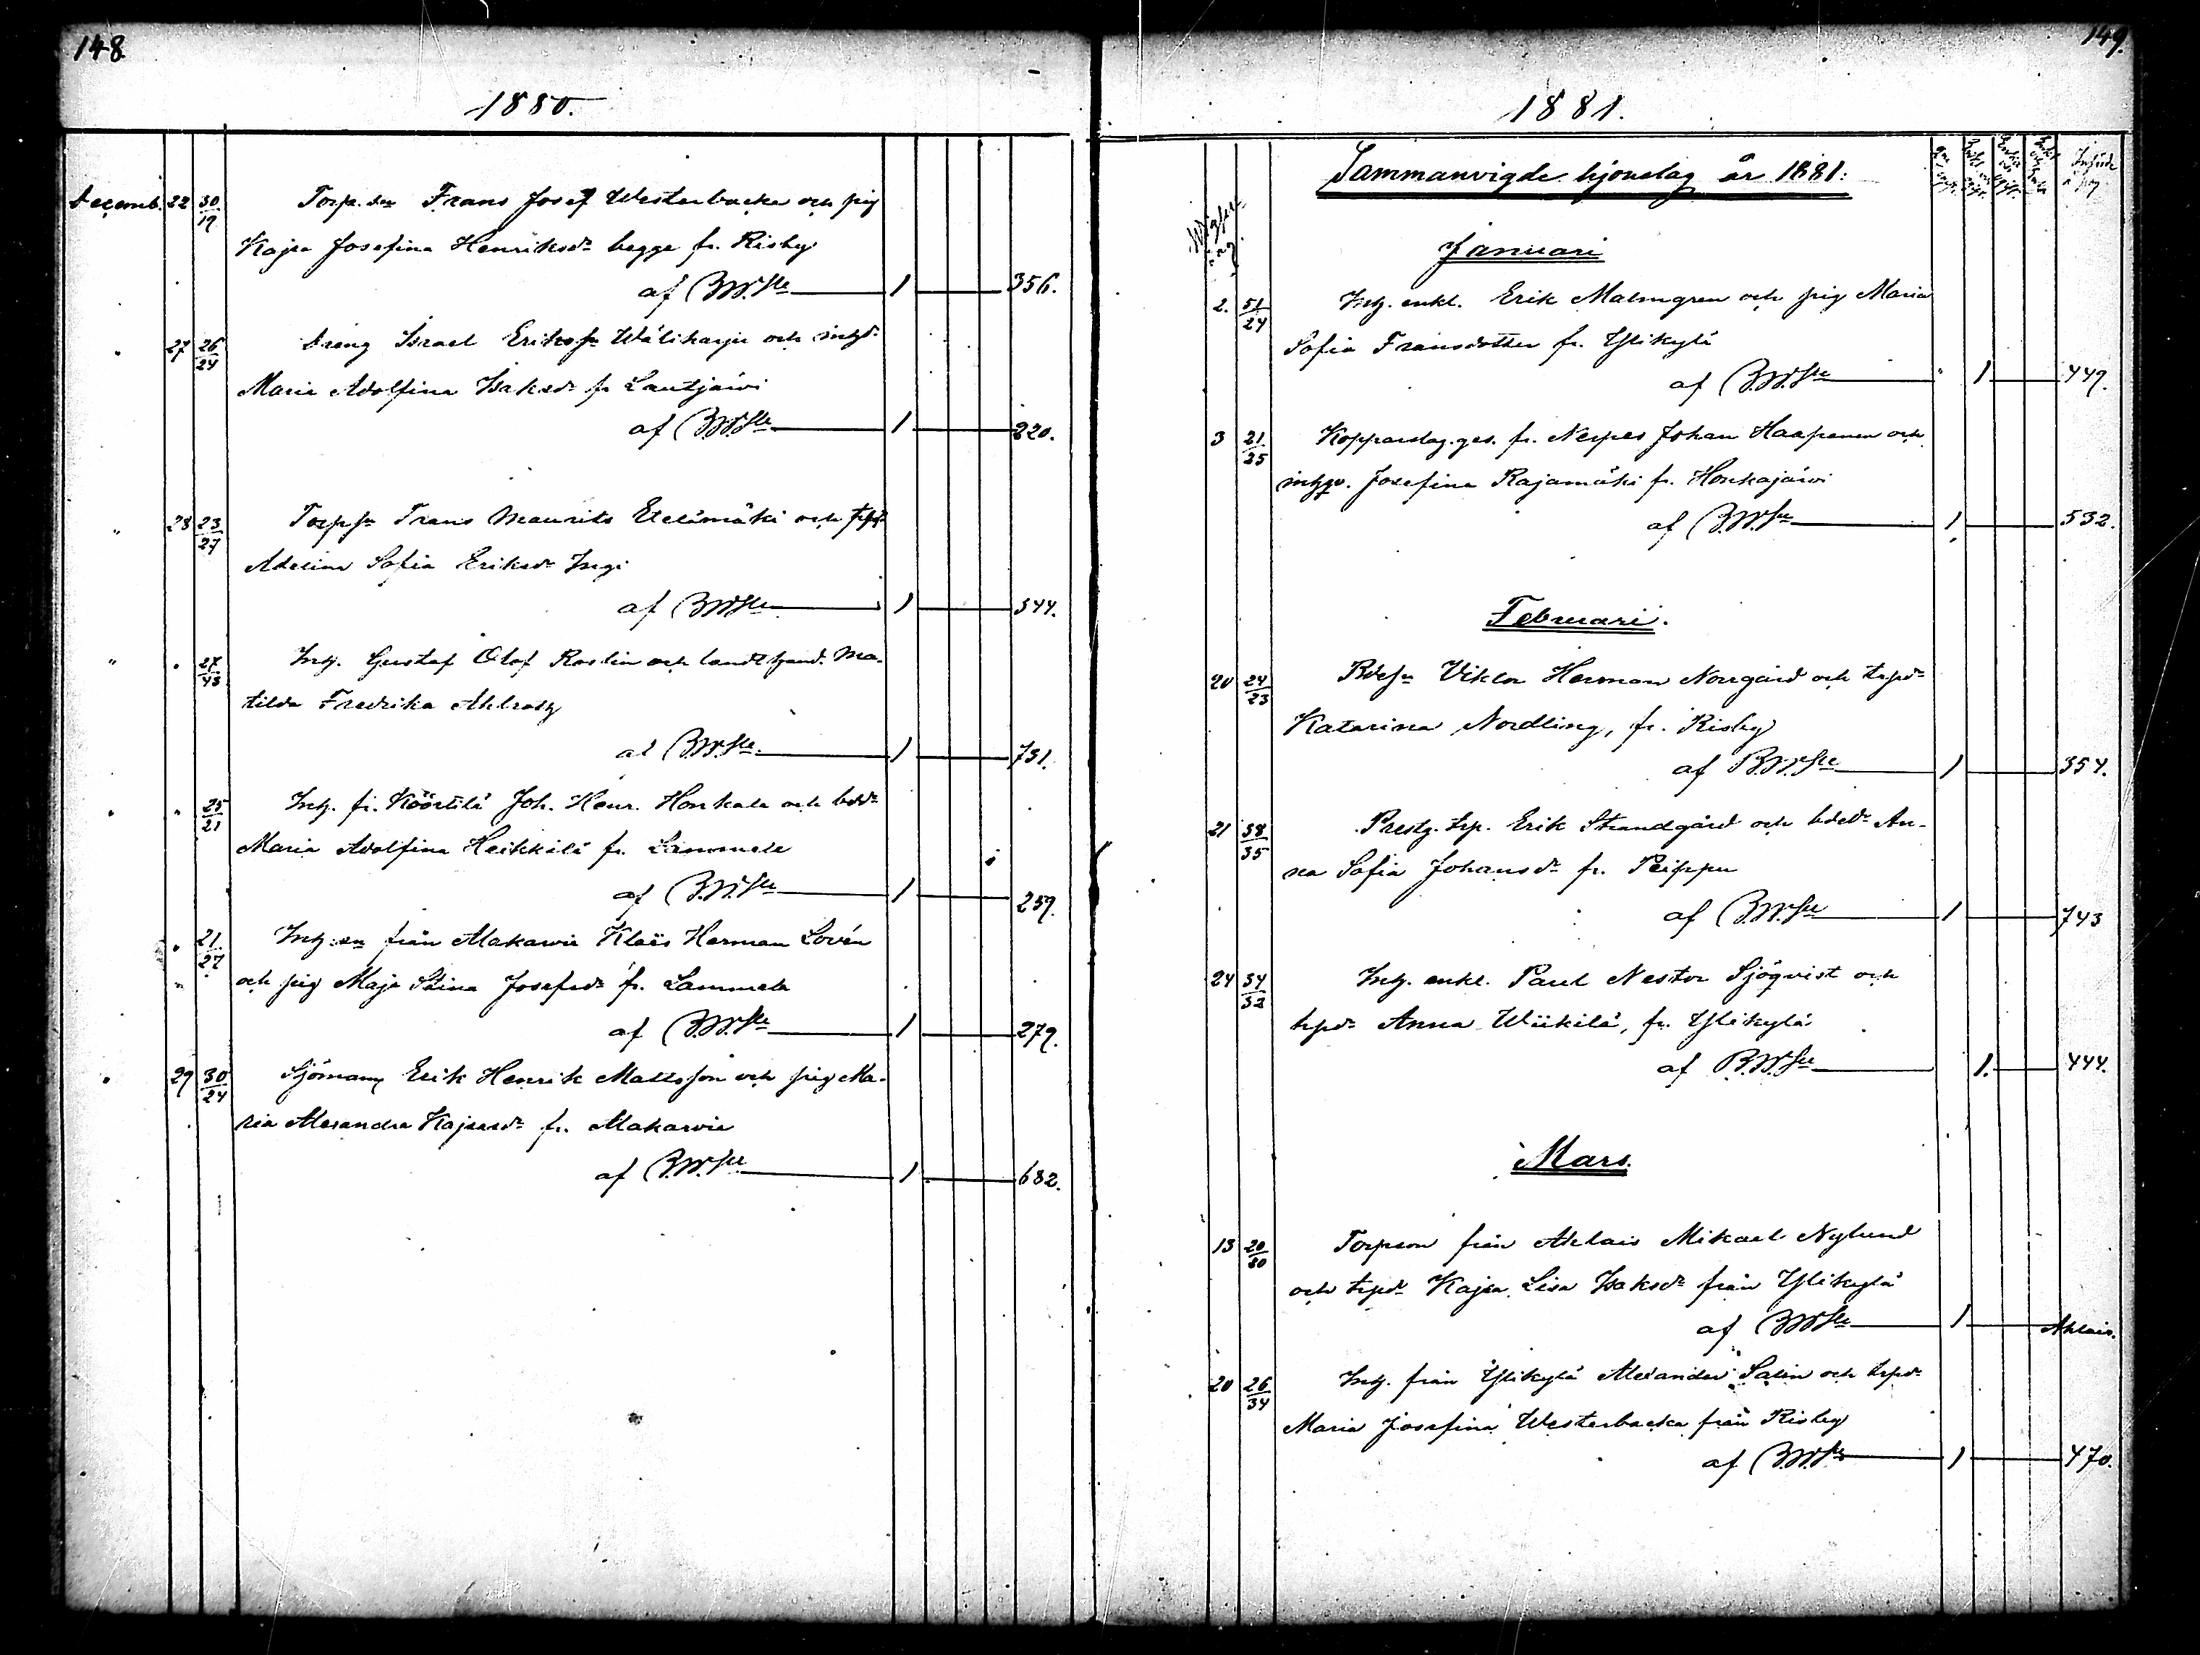 148
1880.
Decemb. 22 30/19 Torp.sn Frans Josef Westerbacka och pig
Kajsa Josefina Henriksdr begge fr. Risby
af 1 356.
27 26/24 Dreng Israel Eriksson Wäliharju och inhysdr
Maria Adolfina Isaksdr fr Lautjärvi
af 1 220.
28 23/27 Torpsn Frans Maurits Etelämäki och
Adelina Sofia Eriksdr
af 1 344.
27/43 Inh. Gustaf Olof Roslin och landthand. Ma-
tilda Fredrika Ahlroth
af 1 731.
25/21 Inh. fr. Köörtilä Joh. Henr. Honkala och bdr
Maria Adolfina Heikkilä fr. Lammela
af 1 239.
21/27 Inh.sn från Makarvia Klaës Herman Lovén
och pig Maja Stina Josefsdr fr. Lammela
af 1 279.
29 30/24 Sjöman Erik Henrik Mattsson och pig Ma-
ria Alexandra Kajsasdr fr. Makarvia
af 1 682.
149.
1881.
Sammanvigde hjonelag år 1881.
Januari
2. 51/24 Inh. enkl. Erik Malmgren och pig Maria
Sofia Fransdotter fr. Ylikylä
af 1 449.
3 21/25 Kopparslag.ges. fr. Nerpes Johan Haapanen och
Josefina Rajamäki fr. Honkajärvi
af 1 532.
Februari.
20 24/23 Bdesn Viktor Herman Norrgård och torpdr
Katarina Nordling, fr. Risby
af 1 354.
21 38/35 Prestg. trp. Erik Strandgård och bdedr An-
na Sofia Johansdr fr. Peippu
af 1 743
24 34/32 Inh. enkl. Paul Nestor Sjöqvist och
trpdr Anna Wiikilä, fr. Ylikylä
af 1. 444.
Mars.
13 20/20 Torpson från Ahlais Mikael Nylund
och trpdr Kajsa Lisa Isaksdr från Ylikylä
af 1 Ahlais.
20 26/34 Inh. från Ylikylä Alexander Salin och trpdr
Maria Josefina Westerbacka från Risby
af 1 470.